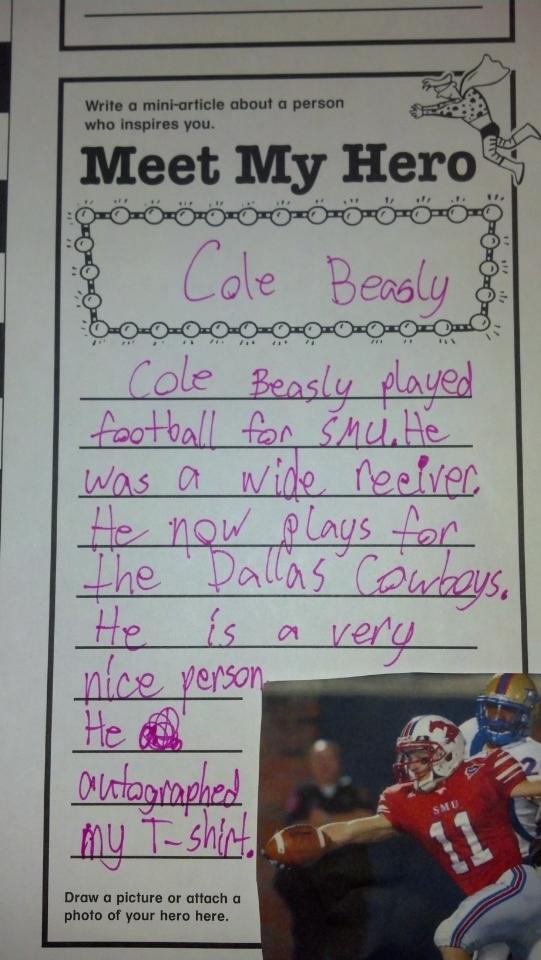 Write a mini-article about a person
who inspires you.
Meet My Hero
Cole Beasly
Cole Beasly played
football for SMU. He
was a wide reeiver.
He now plays for
the Dallas Cowboys.
He is a very
nice person
He
autographed
my T-shirt.
SMU
11
2
Draw a picture or attach a
photo of your hero here.